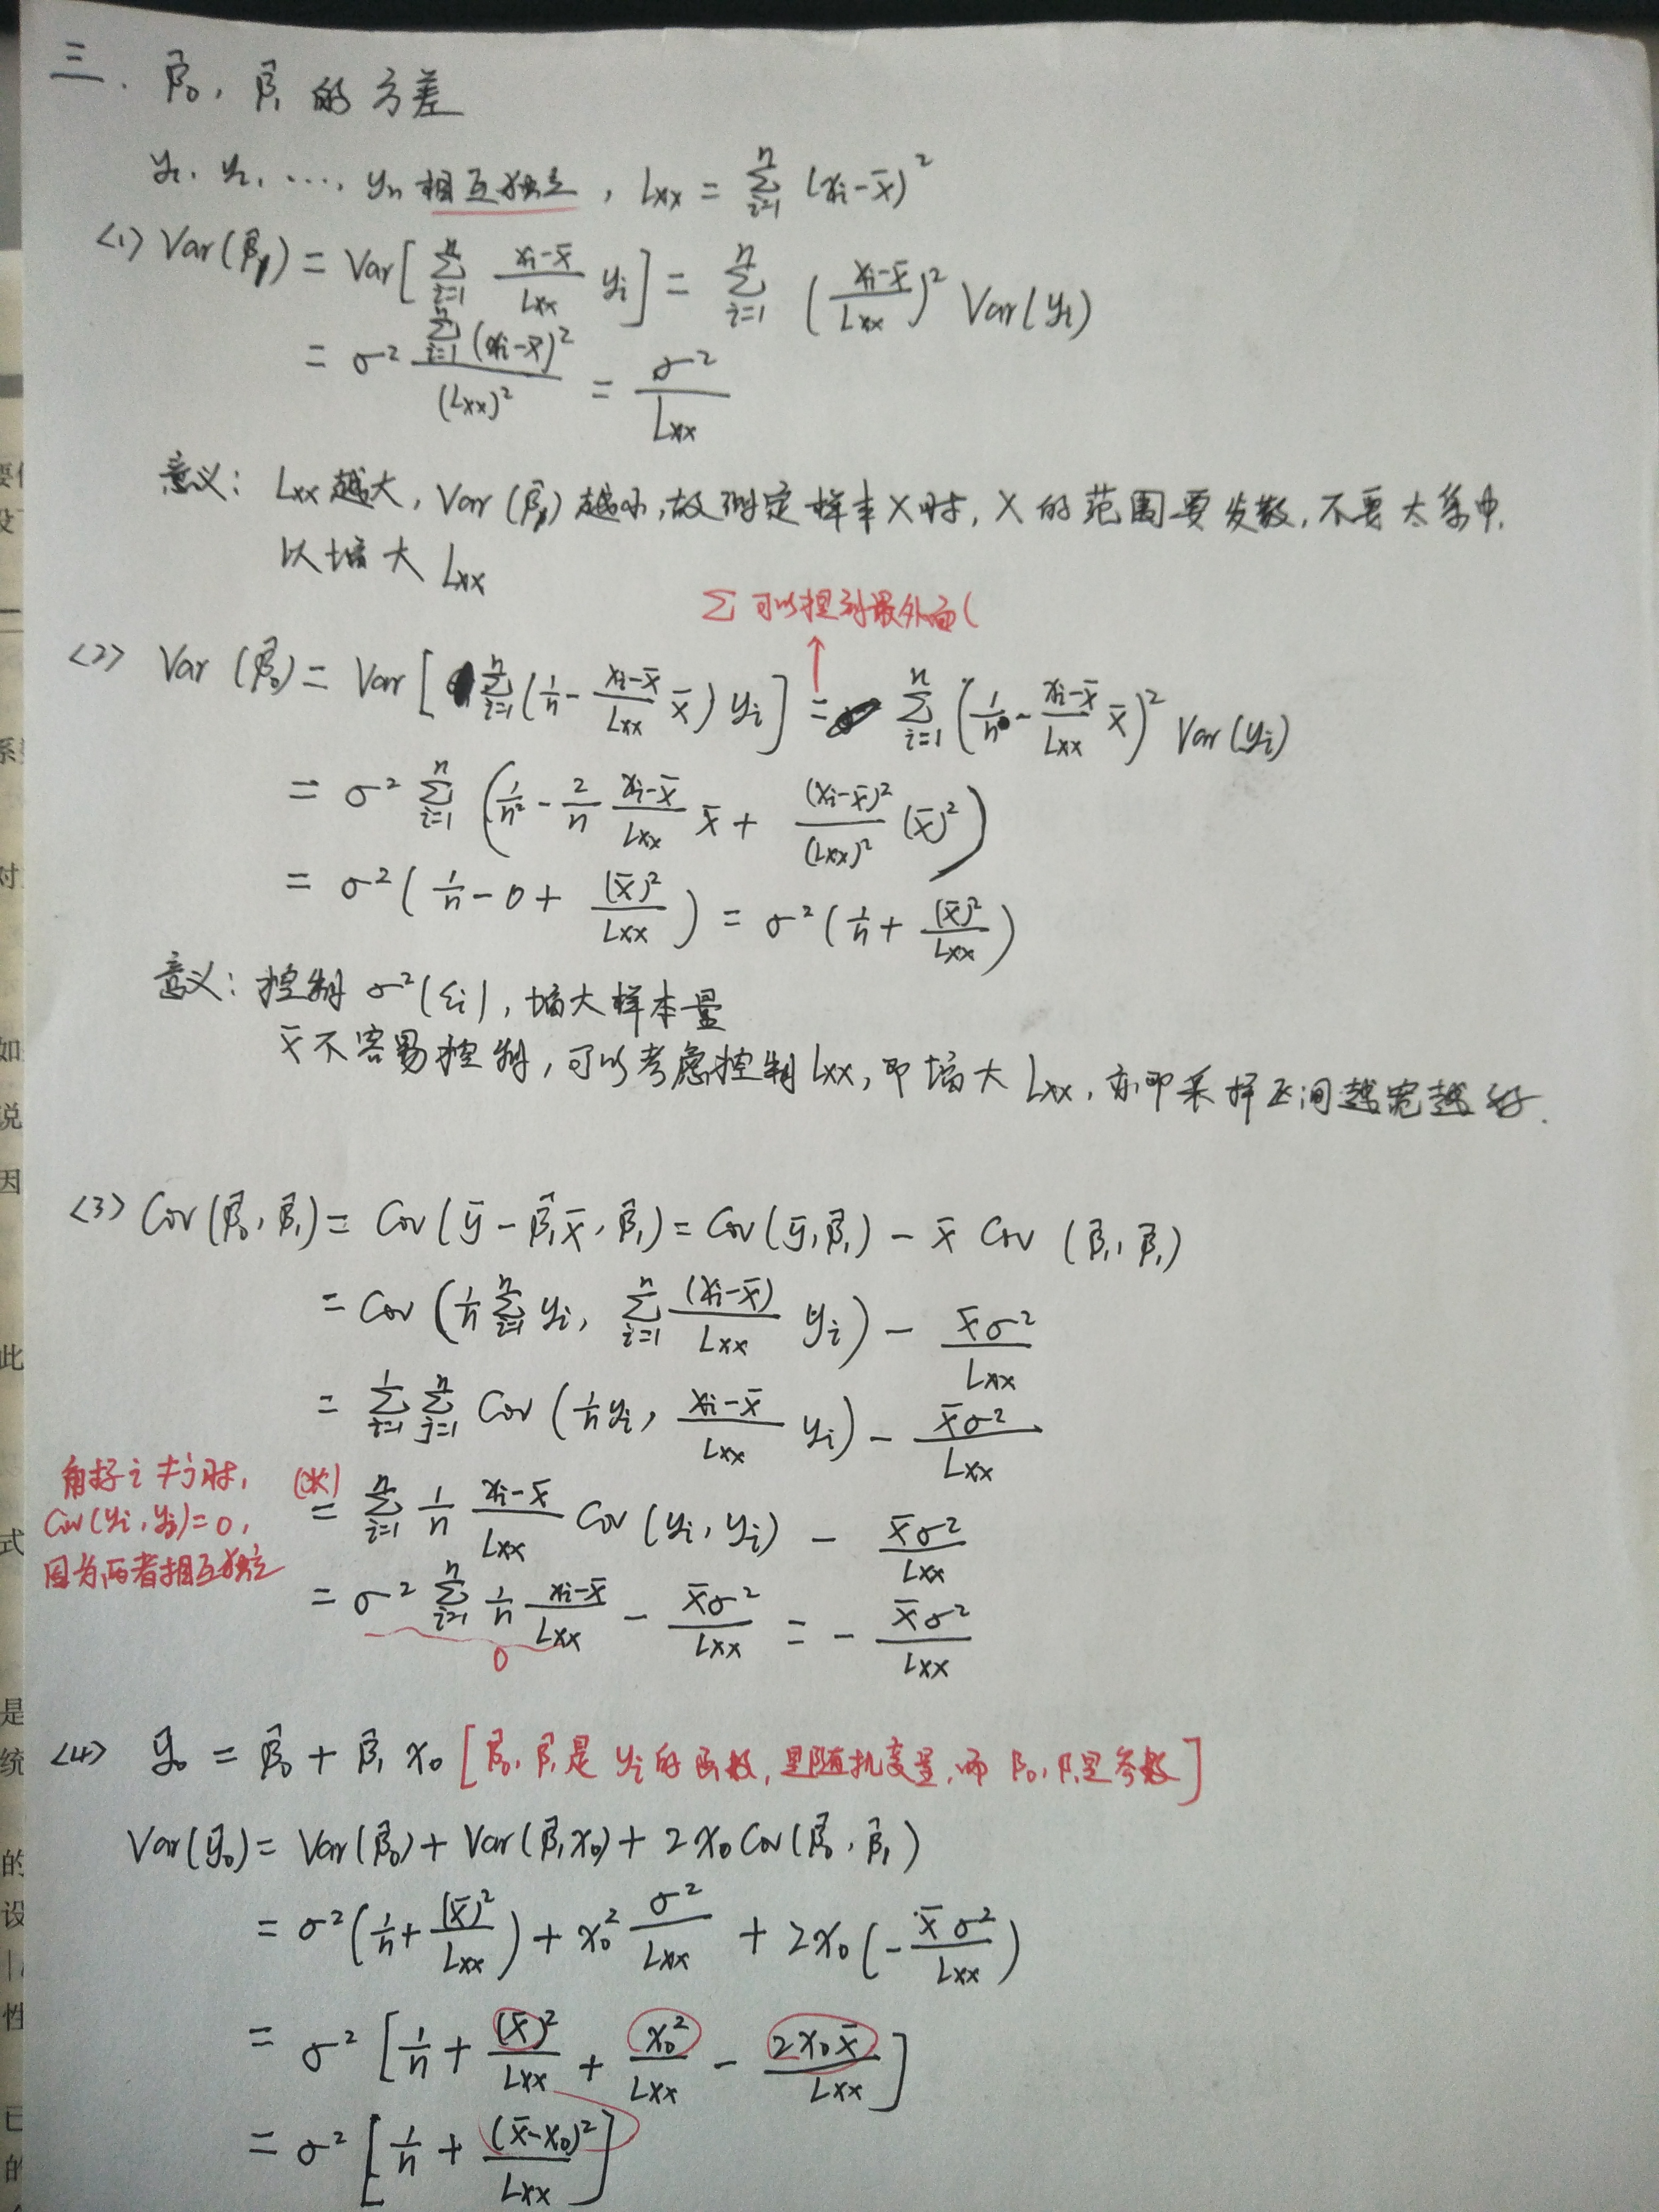 三. β̂₀, β̂₁ 的方差
y₁, y₂, ..., yₙ 相互独立, Lxx = Σᵢ₌₁ⁿ (xᵢ-x̄)²
<1> Var(β̂₁) = Var[Σᵢ₌₁ⁿ (xᵢ-x̄)/Lxx yᵢ] = Σᵢ₌₁ⁿ ((xᵢ-x̄)/Lxx)² Var(yᵢ)
= σ² Σᵢ₌₁ⁿ(xᵢ-x̄)²/(Lxx)² = σ²/Lxx
意义: Lxx越大, Var(β̂₁)越小, 故测定样本X时, X的范围要发散, 不要太集中,
以增大 Lxx
Σ 可以提到最外面(
<2> Var(β̂₀) = Var[Σᵢ₌₁ⁿ(1/n - (xᵢ-x̄)/Lxx x̄) yᵢ] = Σᵢ₌₁ⁿ (1/n - (xᵢ-x̄)/Lxx x̄)² Var(yᵢ)
= σ² Σᵢ₌₁ⁿ (1/n² - 2/n (xᵢ-x̄)/Lxx x̄ + (xᵢ-x̄)²/(Lxx)² (x̄)²)
= σ²(1/n - 0 + (x̄)²/Lxx) = σ²(1/n + (x̄)²/Lxx)
意义: 控制 σ²(εᵢ), 增大样本量
x̄不容易控制, 可以考虑控制Lxx, 即增大 Lxx, 亦即采样区间越宽越好.
<3> Cov(β̂₀, β̂₁) = Cov(ȳ - β̂₁x̄, β̂₁) = Cov(ȳ, β̂₁) - x̄ Cov(β̂₁, β̂₁)
= Cov(1/n Σᵢ₌₁ⁿ yᵢ, Σᵢ₌₁ⁿ (xᵢ-x̄)/Lxx yᵢ) - x̄σ²/Lxx
= Σᵢ₌₁ Σⱼ₌₁ⁿ Cov(1/n yᵢ, (xᵢ-x̄)/Lxx yᵢ) - x̄σ²/Lxx
(※)
= Σᵢ₌₁ⁿ 1/n (xᵢ-x̄)/Lxx Cov(yᵢ, yᵢ) - x̄σ²/Lxx
角标 i ≠ j 时,
Cov(yᵢ, yⱼ)=0,
因为两者相互独立
= σ² Σᵢ₌₁ⁿ 1/n (xᵢ-x̄)/Lxx - x̄σ²/Lxx = - x̄σ²/Lxx
0
<4> ŷ₀ = β̂₀ + β̂₁ x₀ [β̂₀, β̂₁是 yᵢ的函数, 是随机变量, 而 β₀, β₁是参数]
Var(ŷ₀) = Var(β̂₀) + Var(β̂₁x₀) + 2x₀Cov(β̂₀, β̂₁)
= σ²(1/n + (x̄)²/Lxx) + x₀² σ²/Lxx + 2x₀(- x̄σ²/Lxx)
= σ²[1/n + (x̄)²/Lxx + x₀²/Lxx - 2x₀x̄/Lxx]
= σ²[1/n + (x̄-x₀)²/Lxx]